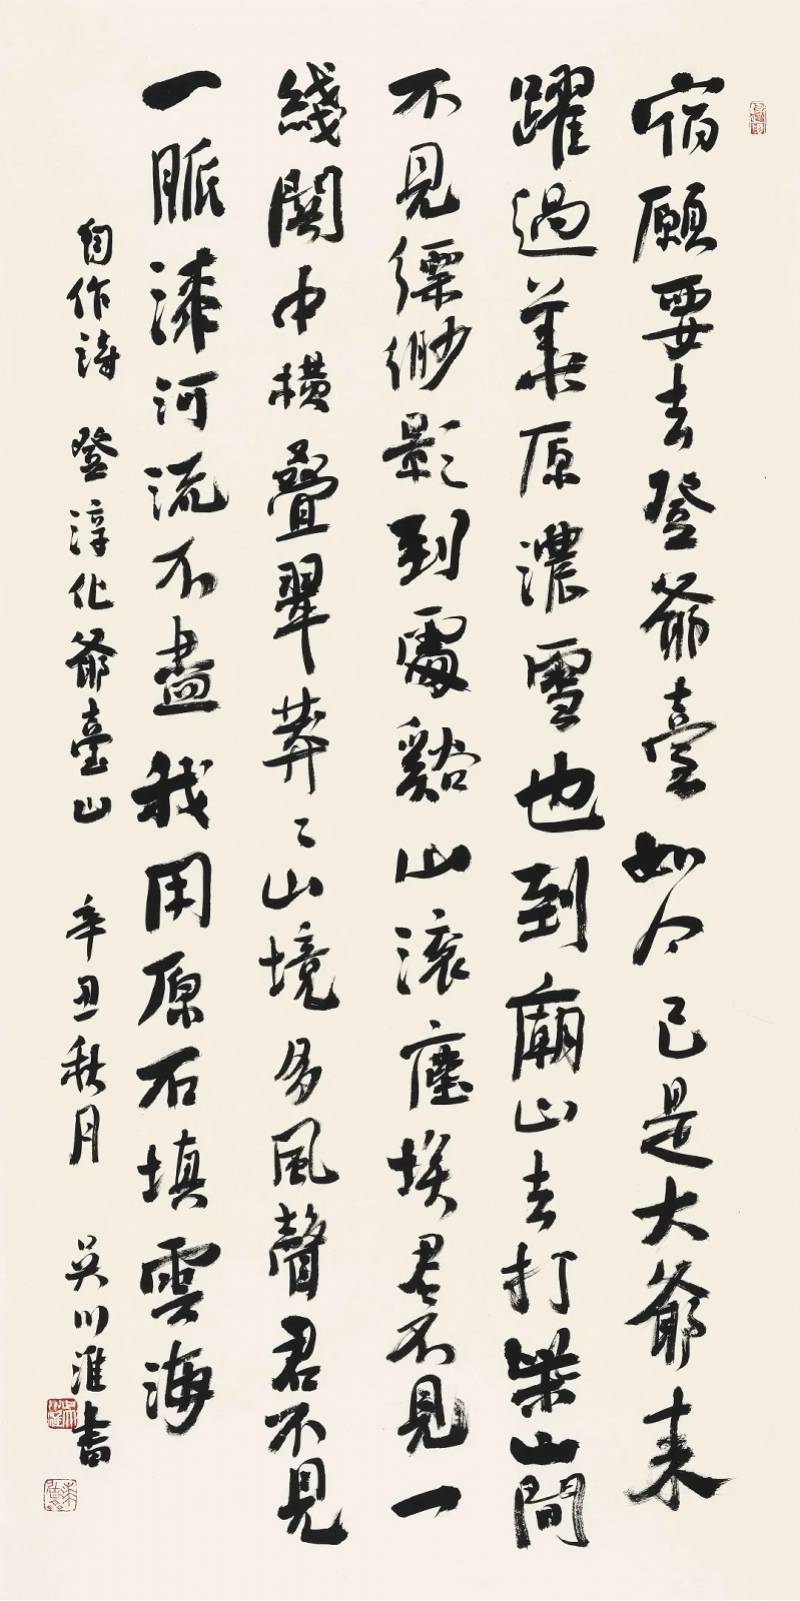 宿願要去登爺臺如今已是大爺来
躍過羕原濃雪也到廟山去打柴山間
不見縹緲影到處谿山滚塵埃君不見一
綫関中横叠翠莽〻山境多風聲君不見
一脈漆河流不盡我用原石填雲海
自作詩 登淳化爺臺山 辛丑秋月 吴川淮書